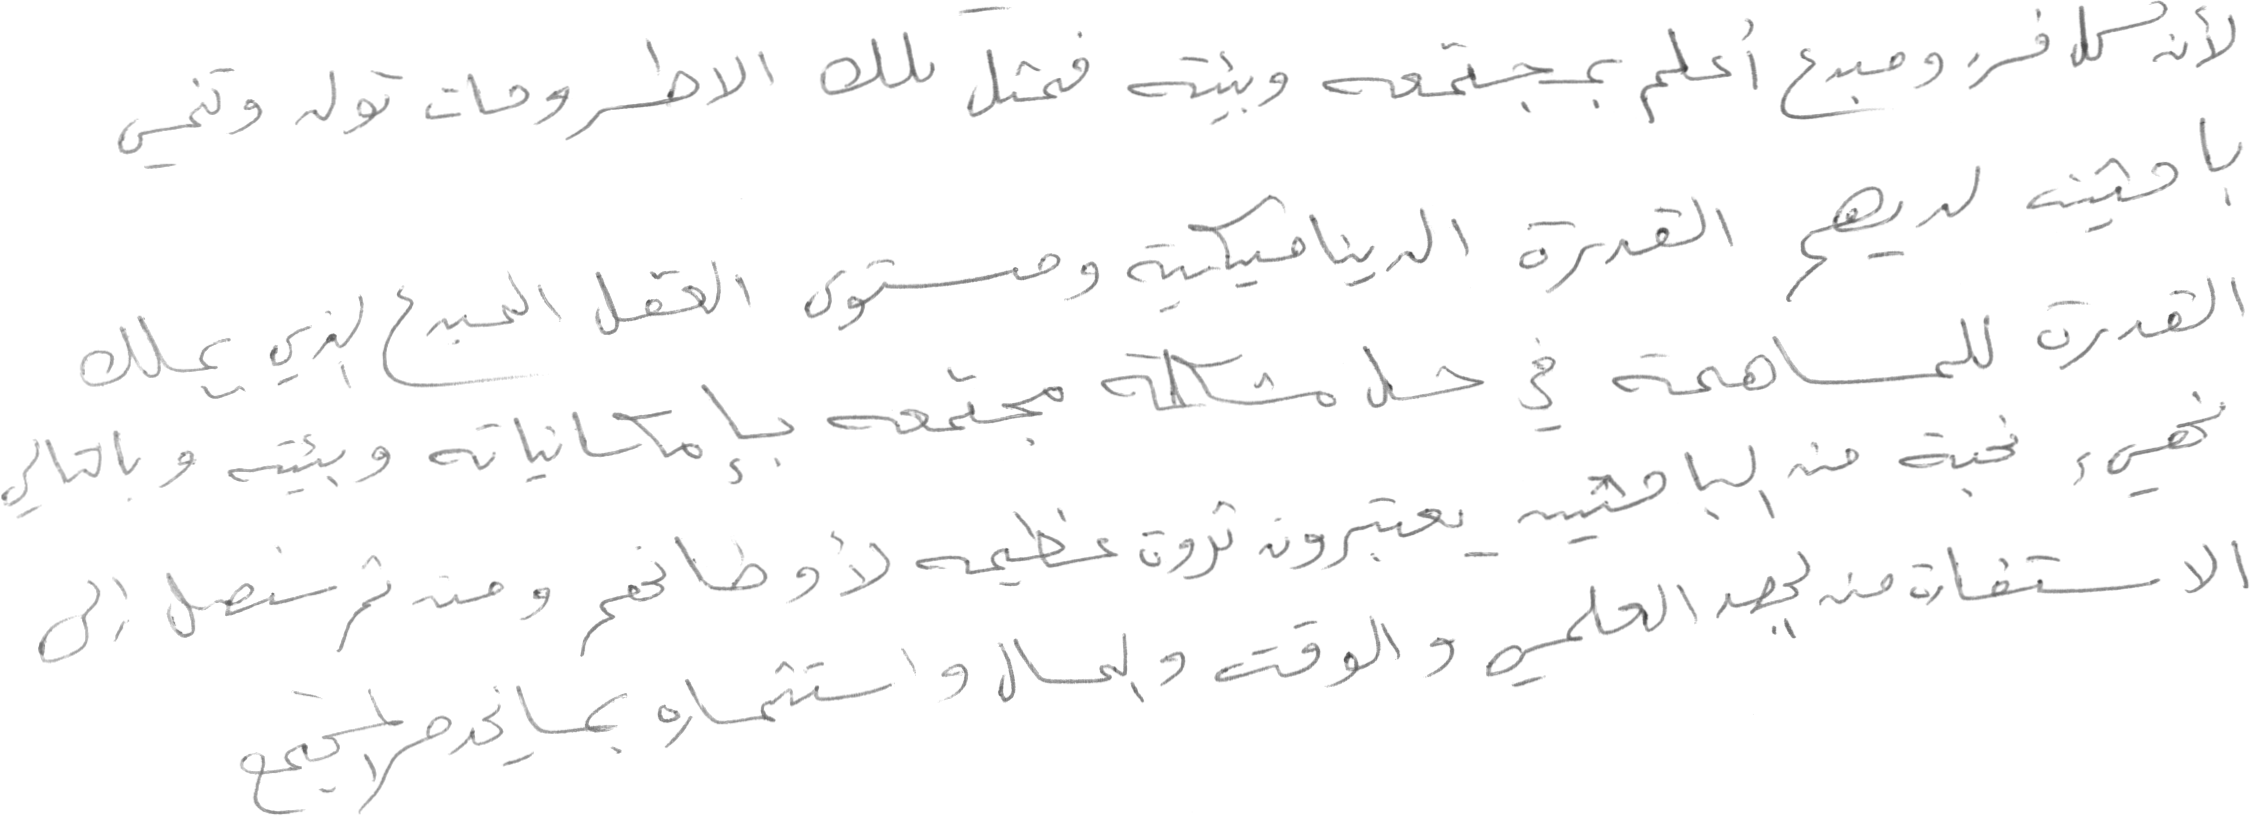 لأن كل فرد ومبدع أعلم بمجتمعه وبيئته فمثل تلك الاطروحات تولد وتنمي
باحثين لديهم القدرة الديناميكية ومستوى العقل المبدع الذي يملك
القدرة للمساهمة في حل مشكلة مجتمعه بإمكانياته وبيئته وبالتالي
نهيء نخبة من الباحثين يعتبرون ثروة عظيمه لأوطانهم ومن ثم سنصل إلى
الاستفادة من الجهد العلمي والوقت والمال واستثماره بما يخدم المجتمع